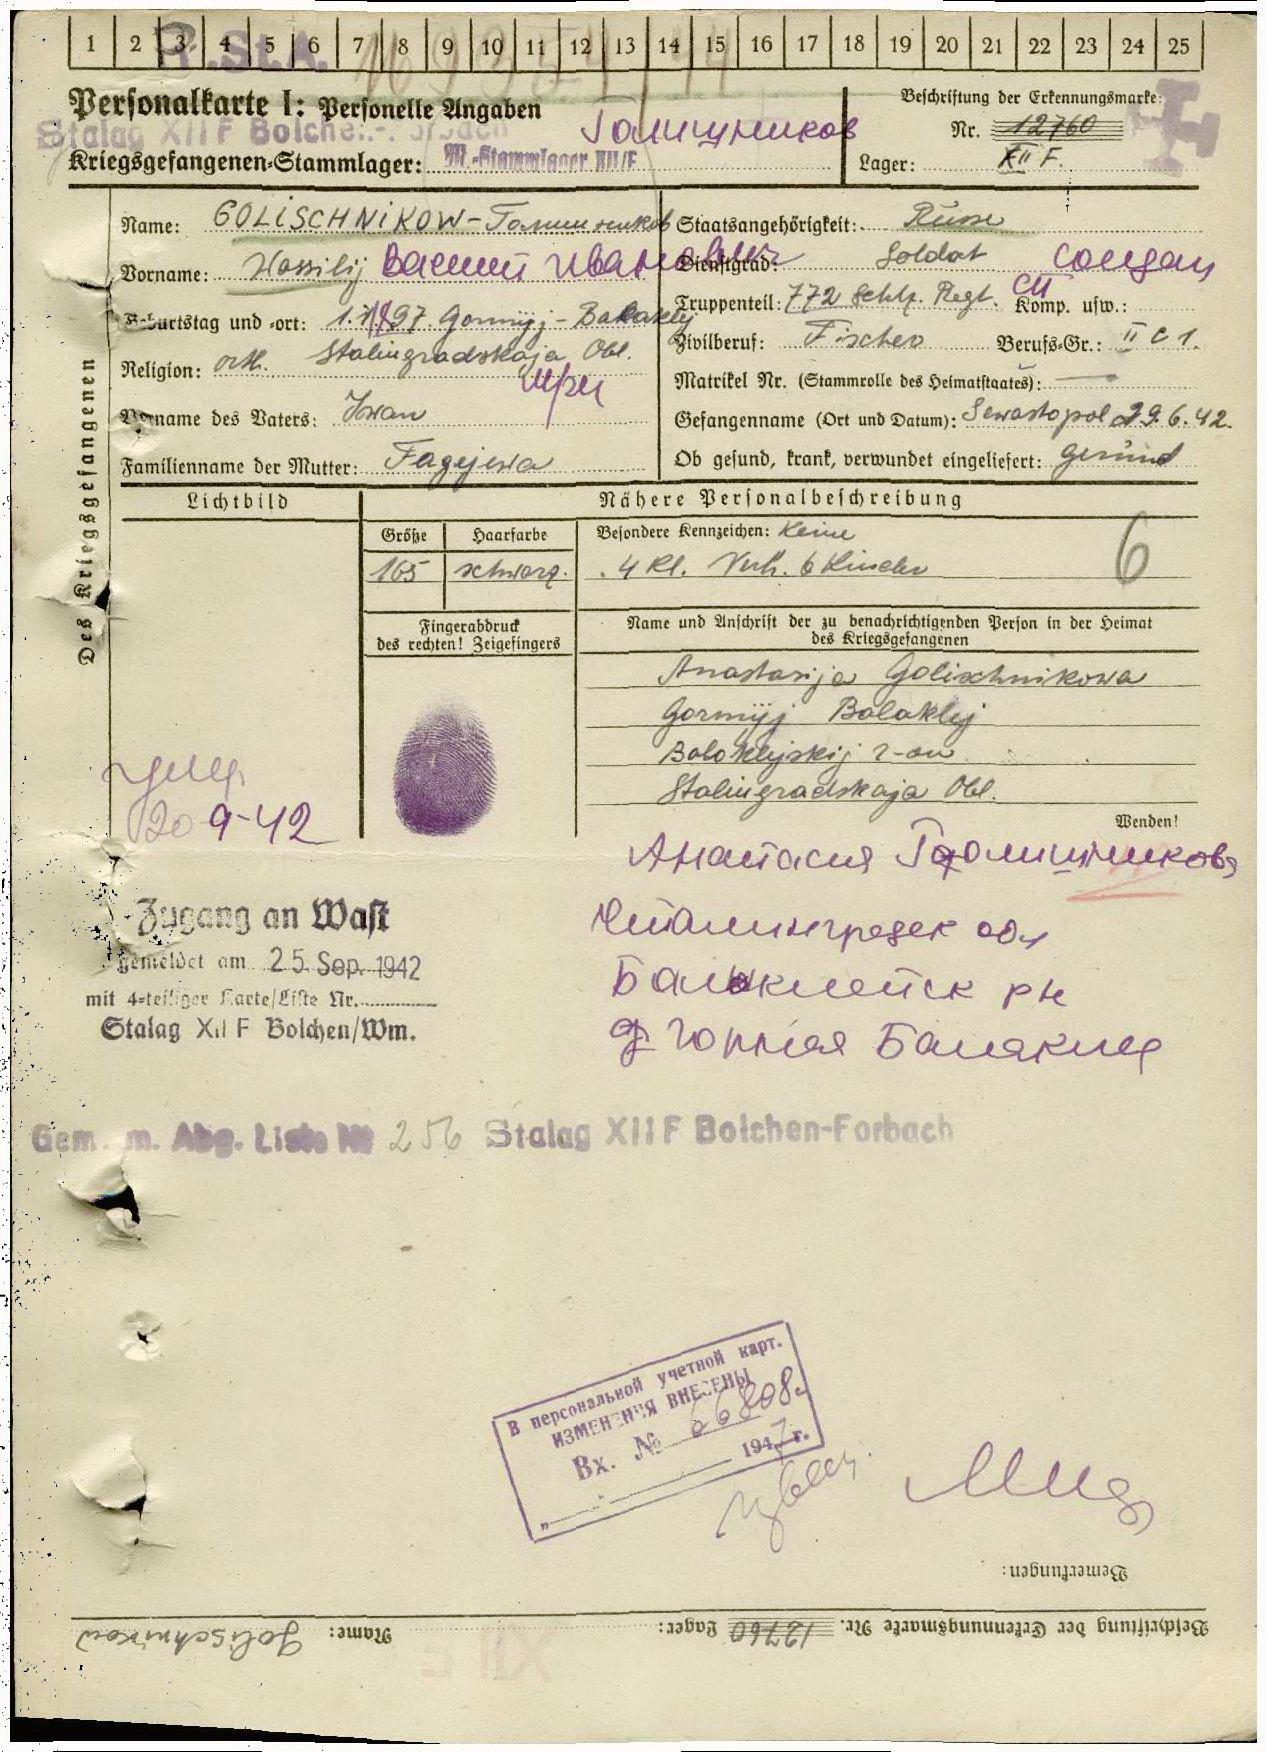 1 2 3 4 5 6 7 8 9 10 11 12 13 14 15 16 17 18 19 20 21 22 23 24 25
Personalkarte I: Personelle Angaben
Beschriftung der Erkennungsmarke:
Stalag XII F Bolchen-
Голищников
Nr. 12760
Kriegsgefangenen-Stammlager: M.-Stammlager XII/F
Lager: XII F.
Des Kriegsgefangenen
Name: GOLISCHNIKOW - Голишников
Staatsangehörigkeit: Russe
Vorname: Wassilij Василий Иванович
Dienstgrad: Soldat солдат
Geburtstag und -ort: 1. 97. Gornyj-Balaklej
Truppenteil: 772 Schtz. Regt. СП Komp. usw.:
Stalingradskaja Obl.
Zivilberuf: Fischer Berufs-Gr.: II C 1.
Religion: orth.
Matrikel Nr. (Stammrolle des Heimatstaates): —
Vorname des Vaters: Iwan
Gefangenname (Ort und Datum): Sewastopol 29.6.42.
Familienname der Mutter: Fagejewa
Ob gesund, krank, verwundet eingeliefert: gesund
Lichtbild
Nähere Personalbeschreibung
Größe Haarfarbe
Besondere Kennzeichen: Keine
165 schwarz.
4 Kl. Verh. 6 Kinder
6
Fingerabdruck
des rechten! Zeigefingers
Name und Anschrift der zu benachrichtigenden Person in der Heimat
des Kriegsgefangenen
Anastasija Golischnikowa
Gornyj Balaklej
Balaklejskij r-on
Stalingradskaja Obl.
умер
20 9-42
Wenden!
Анастасия Голищникова
Сталинградск обл
Балыклейск рн
Горная Балаклея
Zugang an Wast
gemeldet am 25. Sep. 1942
mit 4-teiliger Karte/Liste Nr.
Stalag XII F Bolchen/Wm.
Gem. m. Abg. Liste Nr 256 Stalag XII F Bolchen-Forbach
В персональной учетной карт.
ИЗМЕНЕНИЯ ВНЕСЕНЫ
Вх. № 66808
1947 г.
Bemerkungen:
Beschriftung der Erkennungsmarke Nr. 12760 Lager:
Name: Golischnikow
XII F